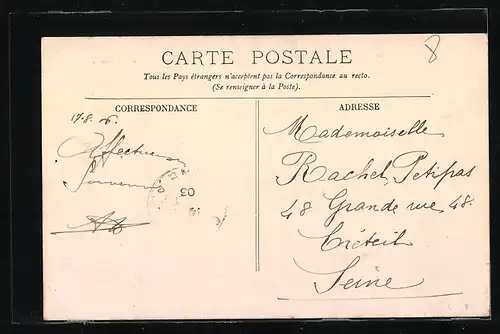 8
CARTE POSTALE
Tous les Pays étrangers n'acceptent pas la Correspondance au recto.
(Se renseigner à la Poste).
CORRESPONDANCE
17.8.06.
Affectueux
Souvenirs
ADRESSE
Mademoiselle
Rachel Petipas
48 Grande rue 48.
Créteil
Seine